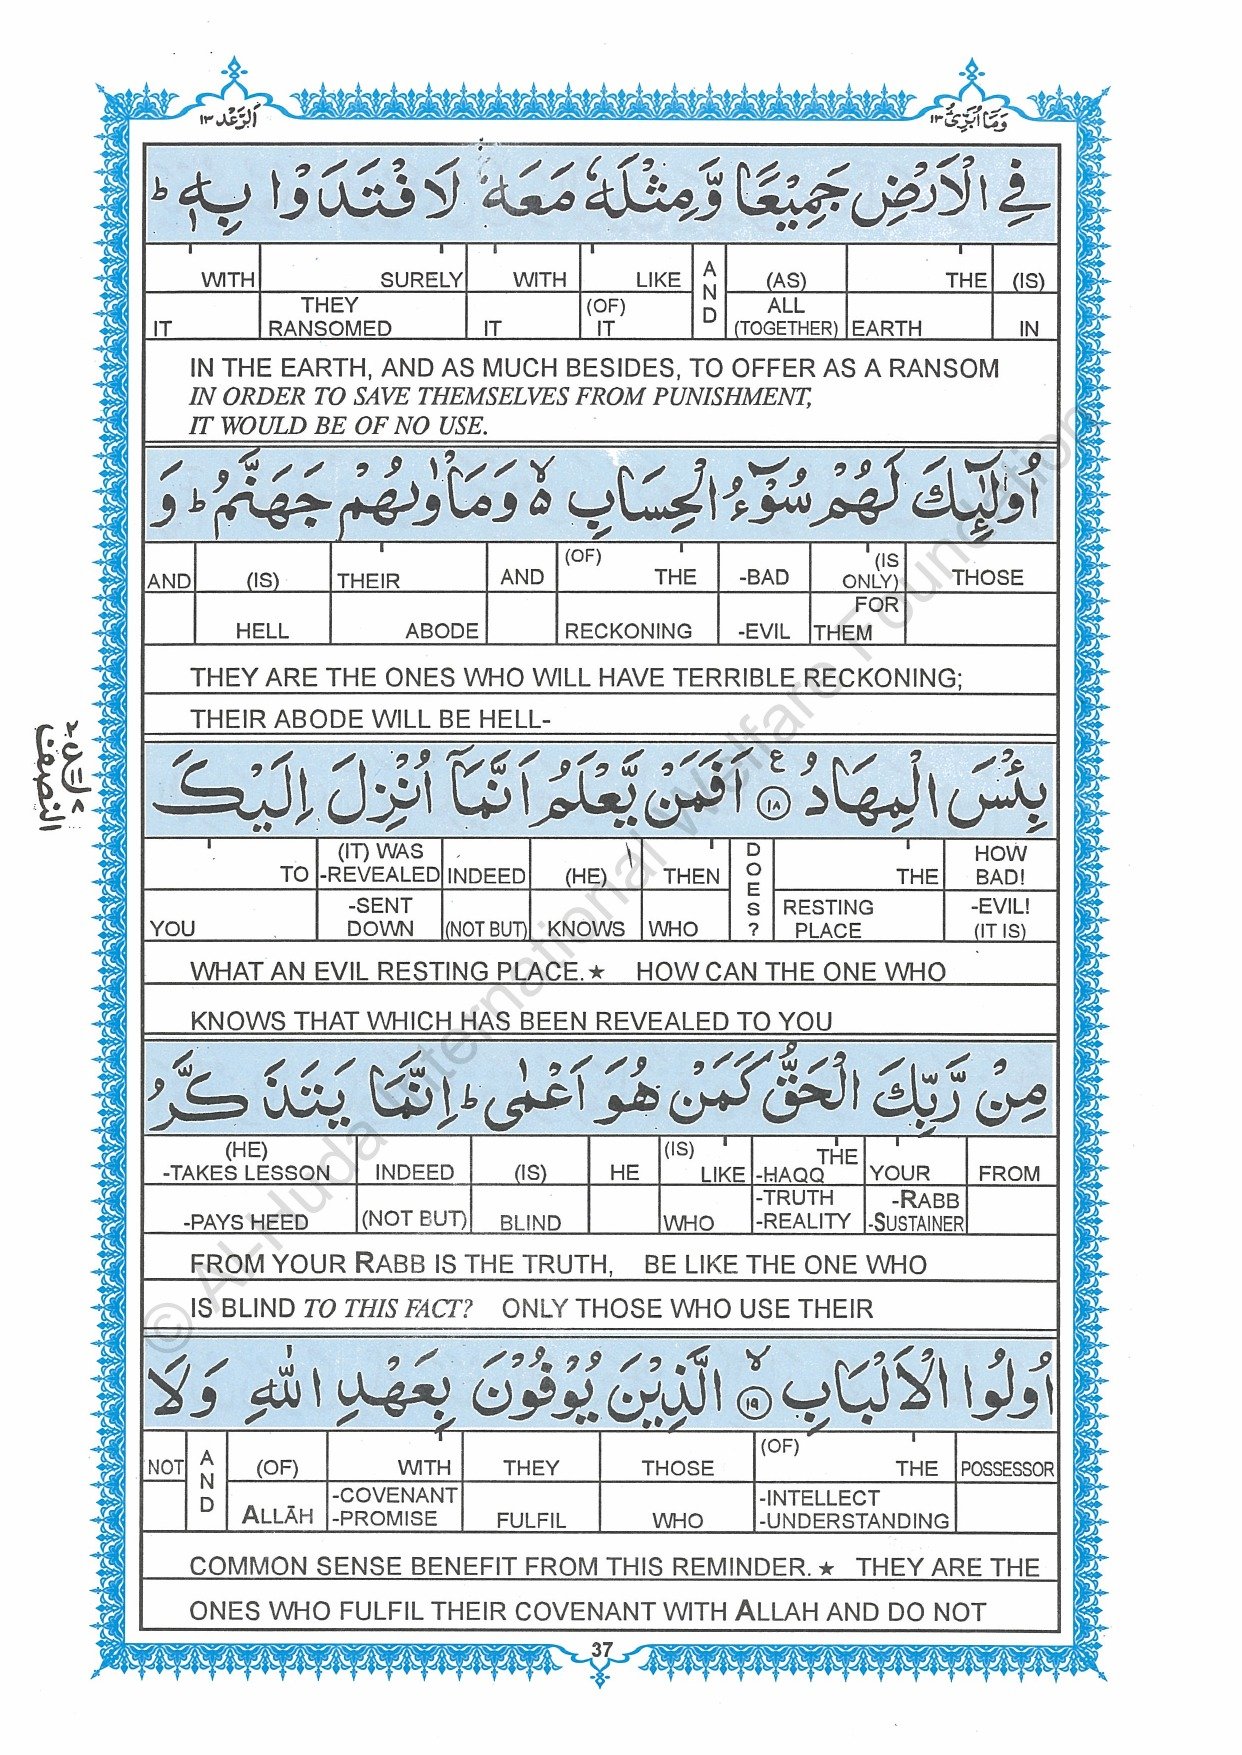 الرعد ١٣
وما ابرئ ١٣
فِي الْاَرْضِ جَمِيْعًا وَّمِثْلَهٗ مَعَهٗ لَافْتَدَوْا بِهٖ ؕ
WITH SURELY WITH LIKE AND (AS) THE (IS)
IT THEY RANSOMED IT (OF) IT ALL (TOGETHER) EARTH IN
IN THE EARTH, AND AS MUCH BESIDES, TO OFFER AS A RANSOM
IN ORDER TO SAVE THEMSELVES FROM PUNISHMENT,
IT WOULD BE OF NO USE.
اُولٰٓئِكَ لَهُمْ سُوْٓءُ الْحِسَابِ ۙ۬ وَمَاْوٰىهُمْ جَهَنَّمُ ؕ وَ
AND (IS) THEIR AND (OF) THE -BAD (IS ONLY) THOSE
HELL ABODE RECKONING -EVIL FOR THEM
THEY ARE THE ONES WHO WILL HAVE TERRIBLE RECKONING;
THEIR ABODE WILL BE HELL-
بِئْسَ الْمِهَادُ ۧ ١٨ اَفَمَنْ يَّعْلَمُ اَنَّمَاۤ اُنْزِلَ اِلَيْكَ
TO (IT) WAS -REVEALED INDEED (HE) THEN DOES? THE HOW BAD!
YOU -SENT DOWN (NOT BUT) KNOWS WHO RESTING PLACE -EVIL! (IT IS)
WHAT AN EVIL RESTING PLACE.★ HOW CAN THE ONE WHO
KNOWS THAT WHICH HAS BEEN REVEALED TO YOU
مِنْ رَّبِّكَ الْحَقُّ كَمَنْ هُوَ اَعْمٰى ؕ اِنَّمَا يَتَذَكَّرُ
(HE) -TAKES LESSON INDEED (IS) HE (IS) LIKE THE -ḤAQQ YOUR FROM
-PAYS HEED (NOT BUT) BLIND WHO -TRUTH -REALITY -RABB -SUSTAINER
FROM YOUR RABB IS THE TRUTH, BE LIKE THE ONE WHO
IS BLIND TO THIS FACT? ONLY THOSE WHO USE THEIR
اُولُوا الْاَلْبَابِ ۙ ١٩ الَّذِيْنَ يُوْفُوْنَ بِعَهْدِ اللّٰهِ وَلَا
NOT AND (OF) WITH THEY THOSE (OF) THE POSSESSOR
ALLĀH -COVENANT -PROMISE FULFIL WHO -INTELLECT -UNDERSTANDING
COMMON SENSE BENEFIT FROM THIS REMINDER. ★ THEY ARE THE
ONES WHO FULFIL THEIR COVENANT WITH ALLAH AND DO NOT
37
© Al-Huda International Welfare Foundation